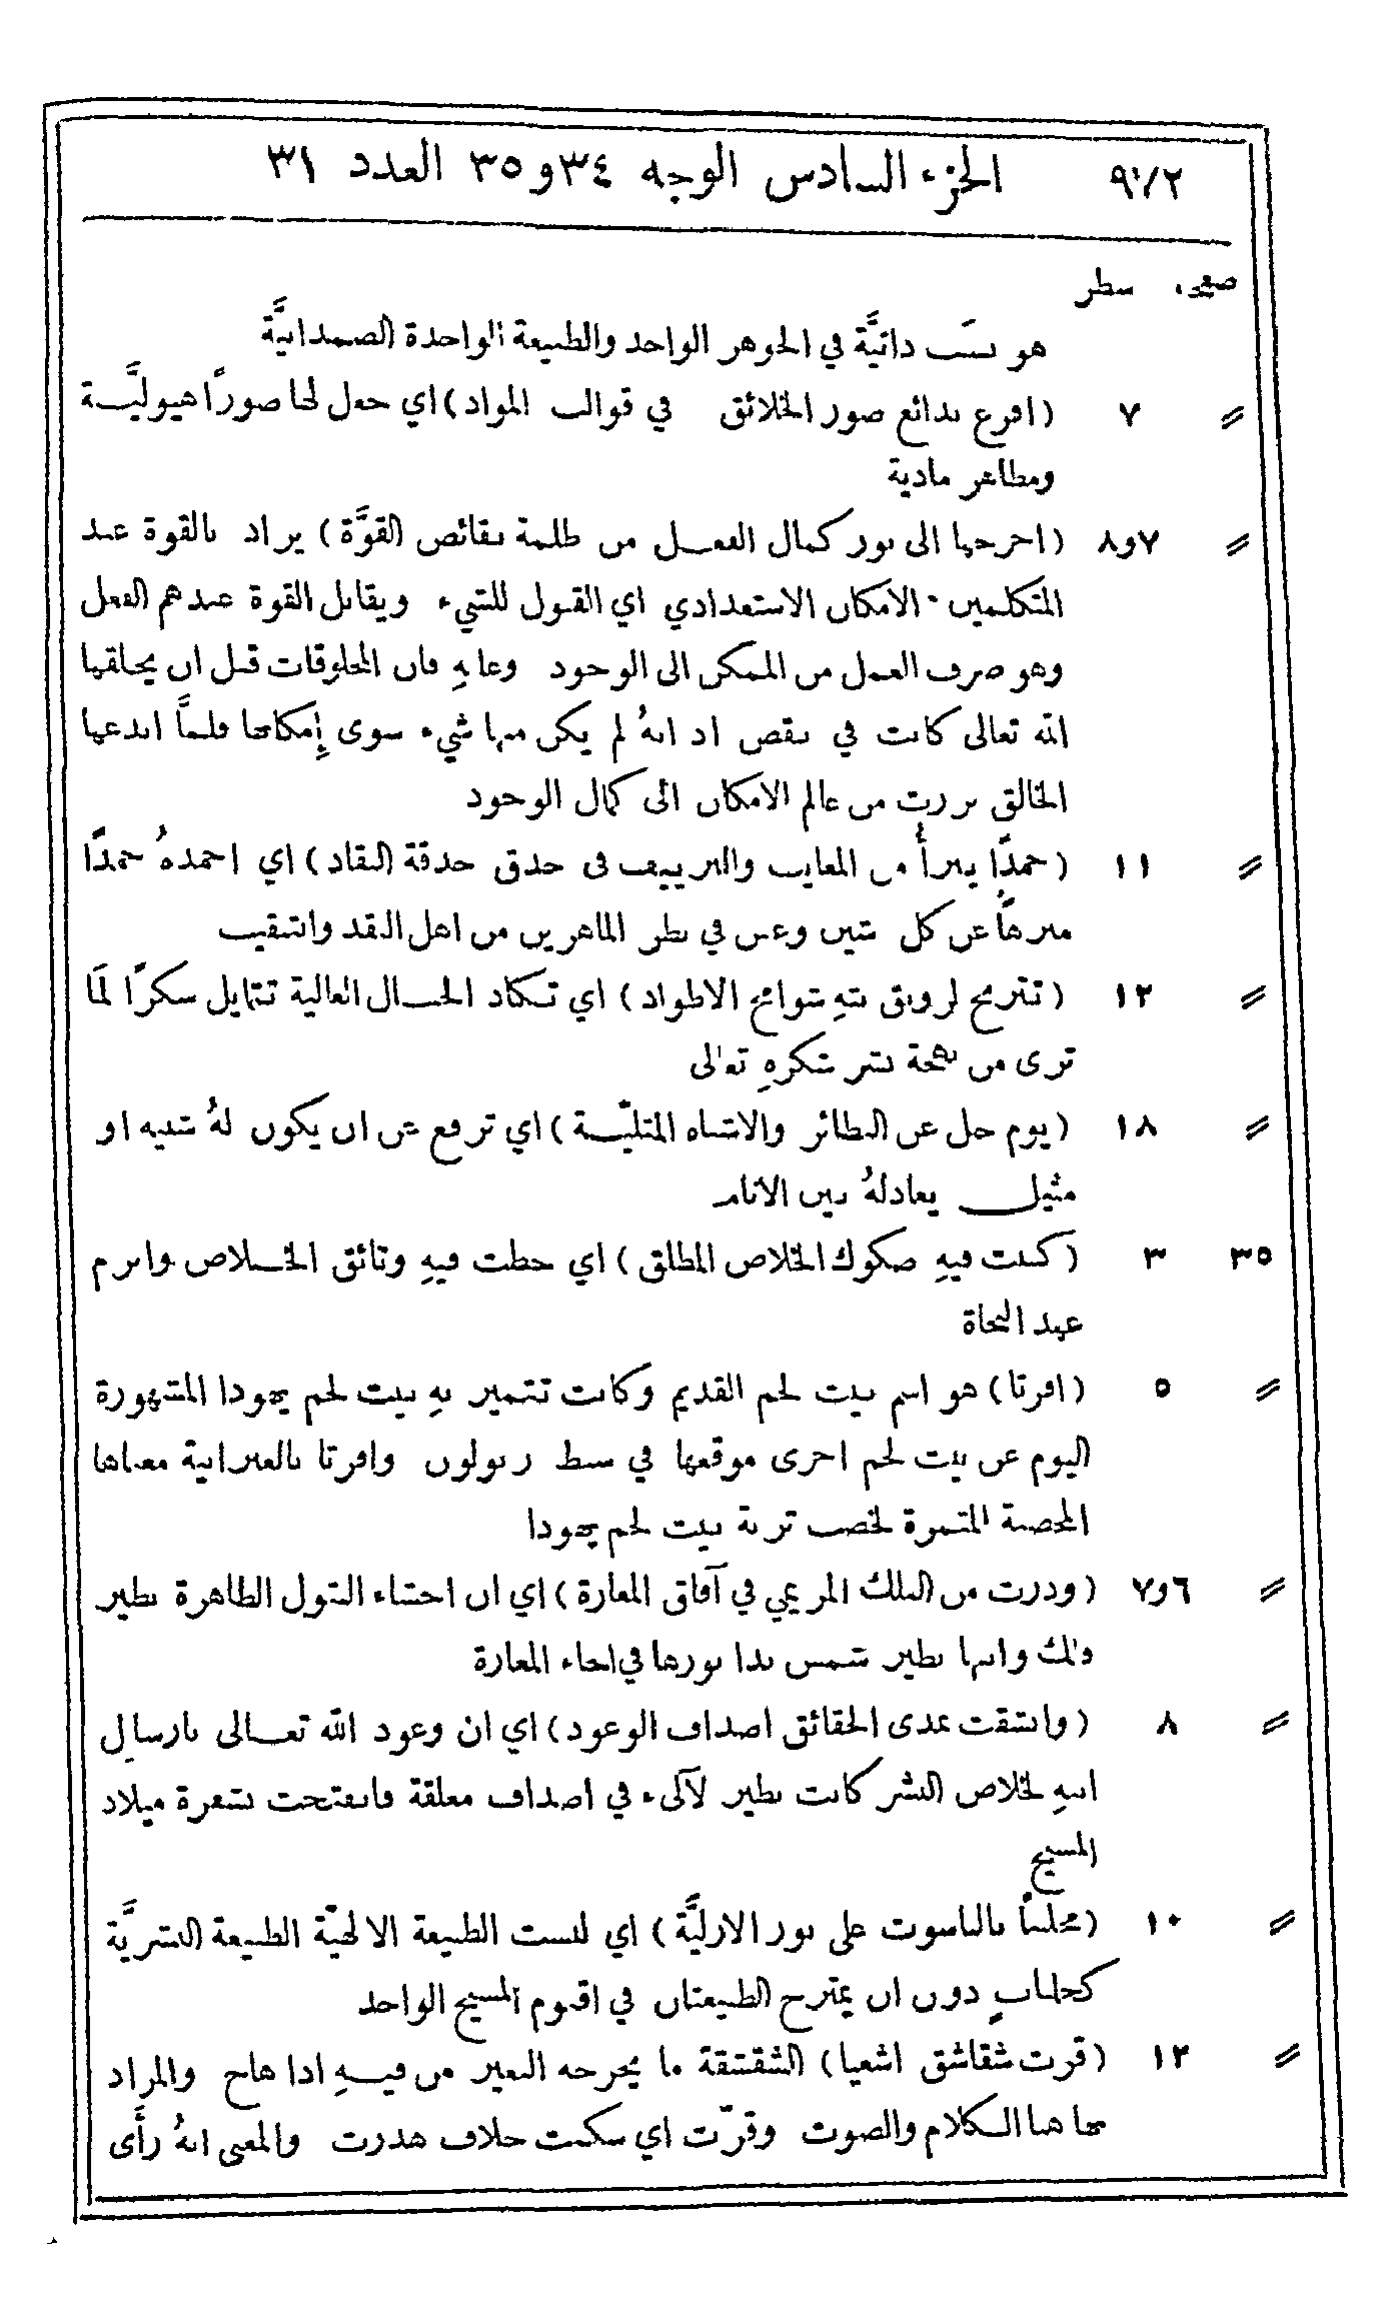 ٩٠٢ الجزء السادس الوجه ٣٤و٣٥ العدد ٣١
صفحة سطر
هو نسب ذاتيَّة في الجوهر الواحد والطبيعة الواحدة الصمدانيَّة
〃 ٧ (افرغ بدائع صور الخلائق في قوالب المواد) اي جعل لها صورًا هيوليَّة
ومظاهر مادية
〃 ٧و٨ (اخرجها الى نور كمال الفعل من ظلمة نقائص القوَّة) يراد بالقوة عند
المتكلمين الامكان الاستعدادي اي القبول للشيء ويقابل القوة عندهم الفعل
وهو صرف العمل من الممكن الى الوجود وعليهِ فان المخلوقات قبل ان يخلقها
الله تعالى كانت في نقص اذ انهُ لم يكن منها شيء سوى إمكانها فلمَّا ابدعها
الخالق برزت من عالم الامكان الى كمال الوجود
〃 ١١ (حمدًا يبرأُ من المعايب والتزييف في حدق حذقة النقاد) اي احمدهُ حمدًا
منزهًا عن كل شين وعيب في نظر الماهرين من اهل النقد والتنقيب
〃 ١٢ (تترنح لرونق بثهِ شوامخ الاطواد) اي تكاد الجبال العالية تتمايل سكرًا لمَا
ترى من بهجة نشر شكرهِ تعالى
〃 ١٨ (يوم جل عن النظائر والاشباه المثليَّة) اي ترفع عن ان يكون لهُ شبيه او
مثيل يعادلهُ بين الانام
٣٥ ٣ (كتبت فيهِ صكوك الخلاص المطلق) اي خطت فيهِ وثائق الخلاص وابرم
عهد النجاة
〃 ٥ (افرتا) هو اسم بيت لحم القديم وكانت تتميز بهِ بيت لحم يهودا المشهورة
اليوم عن بيت لحم اخرى موقعها في سبط زبولون وافرتا بالعبرانية معناها
المخصبة المثمرة لخصب تربة بيت لحم يهودا
〃 ٦و٧ (وذرت من الفلك المريمي في آفاق المغارة) اي ان احشاء البتول الطاهرة نظير
فلك وابنها نظير شمس بدا نورها في انحاء المغارة
〃 ٨ (وانشقت عن الحقائق اصداف الوعود) اي ان وعود الله تعالى بارسال
ابنهِ لخلاص البشر كانت نظير لآلىء في اصداف مغلقة فانفتحت بشعرة ميلاد
المسيح
〃 ١٠ (مجلببًا بالناسوت على نور الازليَّة) اي لبست الطبيعة الالهيَّة الطبيعة البشريَّة
كجلبابٍ دون ان يمتزج الطبيعتان في اقنوم المسيح الواحد
〃 ١٢ (قرت شقاشق اشعيا) الشقشقة ما يخرجه البعير من فيهِ اذا هاج والمراد
بها هنا الكلام والصوت وقرَّت اي سكنت خلاف هدرت والمعنى انهُ رأَى